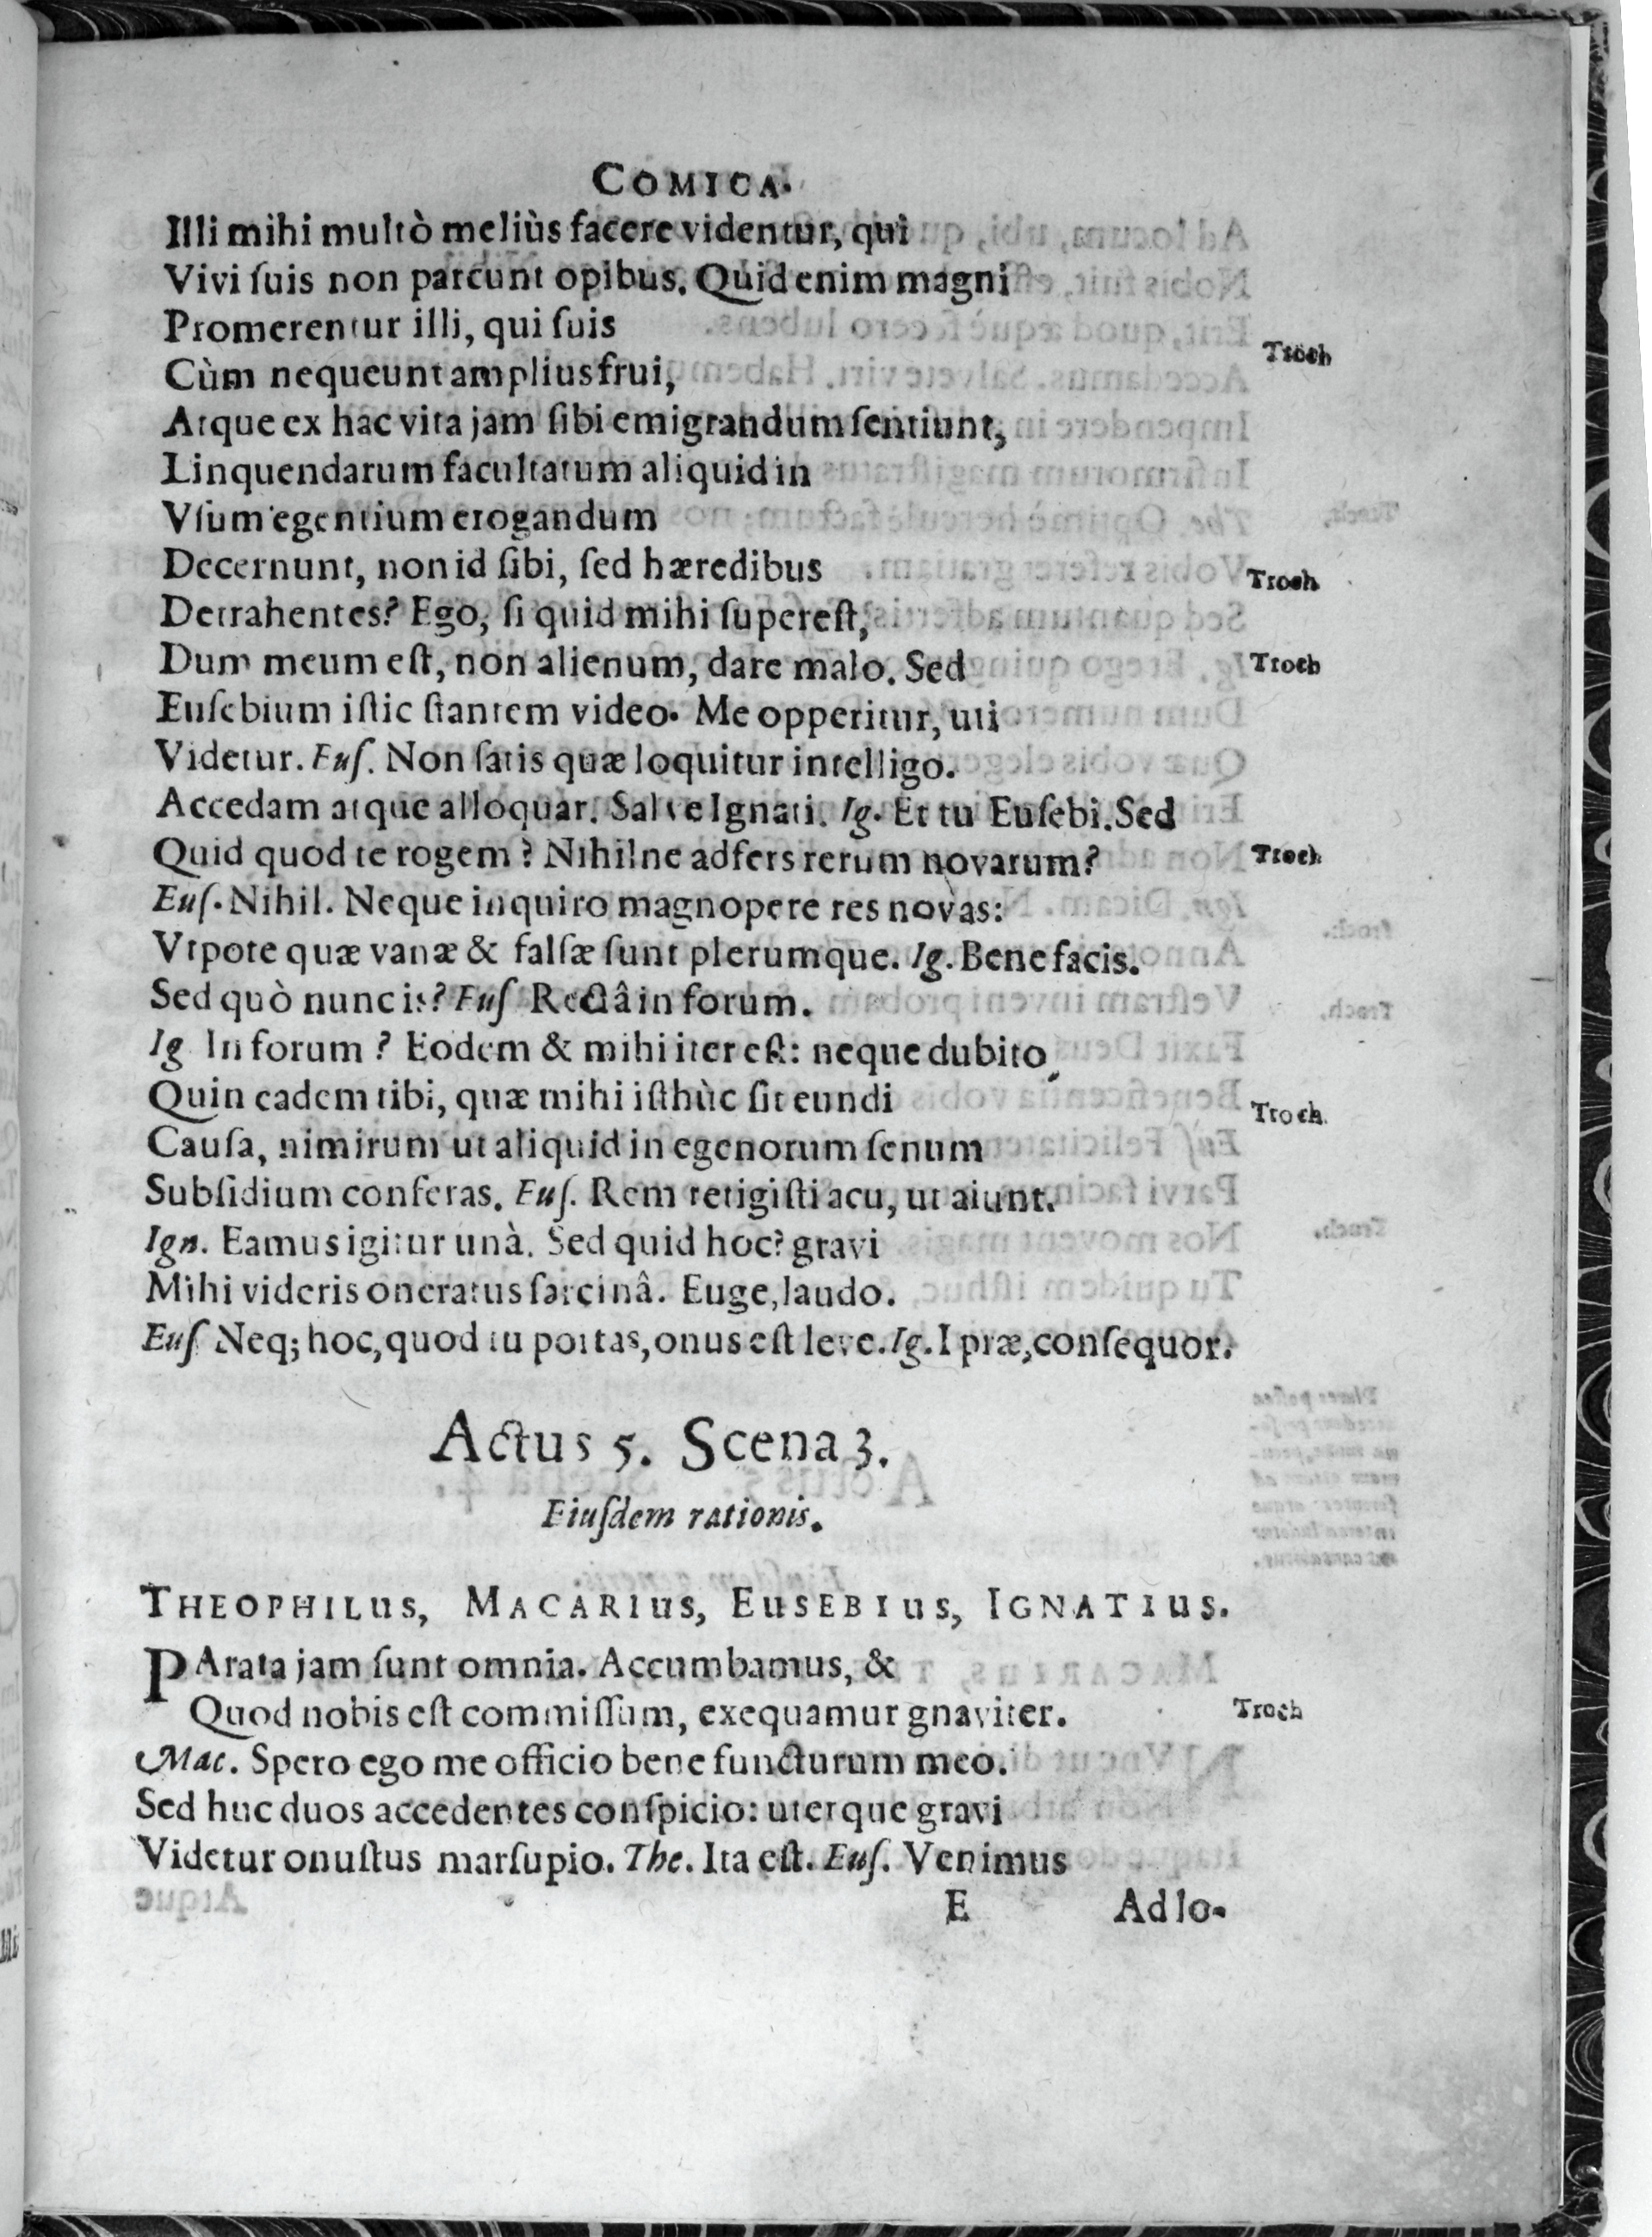 COMICA.
Illi mihi multò meliùs facere videntur, qui
Vivi ſuis non parcunt opibus. Quid enim magni
Promerentur illi, qui ſuis
Troch
Cùm nequeunt amplius frui,
Atque ex hac vita jam ſibi emigrandum ſentiunt,
Linquendarum facultatum aliquid in
Vſum egentium erogandum
Decernunt, non id ſibi, ſed hæredibus
Troch
Detrahentes? Ego, ſi quid mihi ſupereſt,
Dum meum eſt, non alienum, dare malo. Sed
Troch
Euſebium iſtic ſtantem video. Me opperitur, uti
Videtur. Euſ. Non ſatis quæ loquitur intelligo.
Accedam atque alloquar. Salve Ignati. Ig. Et tu Euſebi. Sed
Quid quod te rogem? Nihilne adfers rerum novarum?
Troch
Euſ. Nihil. Neque inquiro magnopere res novas:
Vtpote quæ vanæ & falſæ ſunt plerumque. Ig. Bene facis.
Sed quò nunc is? Euſ Rectâ in forum.
Ig In forum? Eodem & mihi iter eſt: neque dubito,
Quin eadem tibi, quæ mihi iſthùc ſit eundi
Troch.
Cauſa, nimirum ut aliquid in egenorum ſenum
Subſidium conferas. Euſ. Rem tetigiſti acu, ut aiunt.
Ign. Eamus igitur unà. Sed quid hoc? gravi
Mihi videris oneratus ſarcinâ. Euge, laudo.
Euſ Neq; hoc, quod tu portas, onus eſt leve. Ig. I præ, conſequor.
Actus 5. Scena 3.
Eiuſdem rationis.
THEOPHILus, MACARIus, EuSEBIus, IGNATIus.
PArata jam ſunt omnia. Accumbamus, &
Quod nobis eſt commiſſum, exequamur gnaviter.
Troch
Mac. Spero ego me officio bene functurum meo.
Sed huc duos accedentes conſpicio: uterque gravi
Videtur onuſtus marſupio. The. Ita eſt. Euſ. Venimus
E Ad lo-